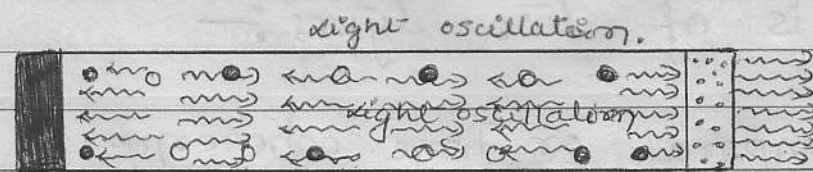 Light oscillation.
Light oscillation